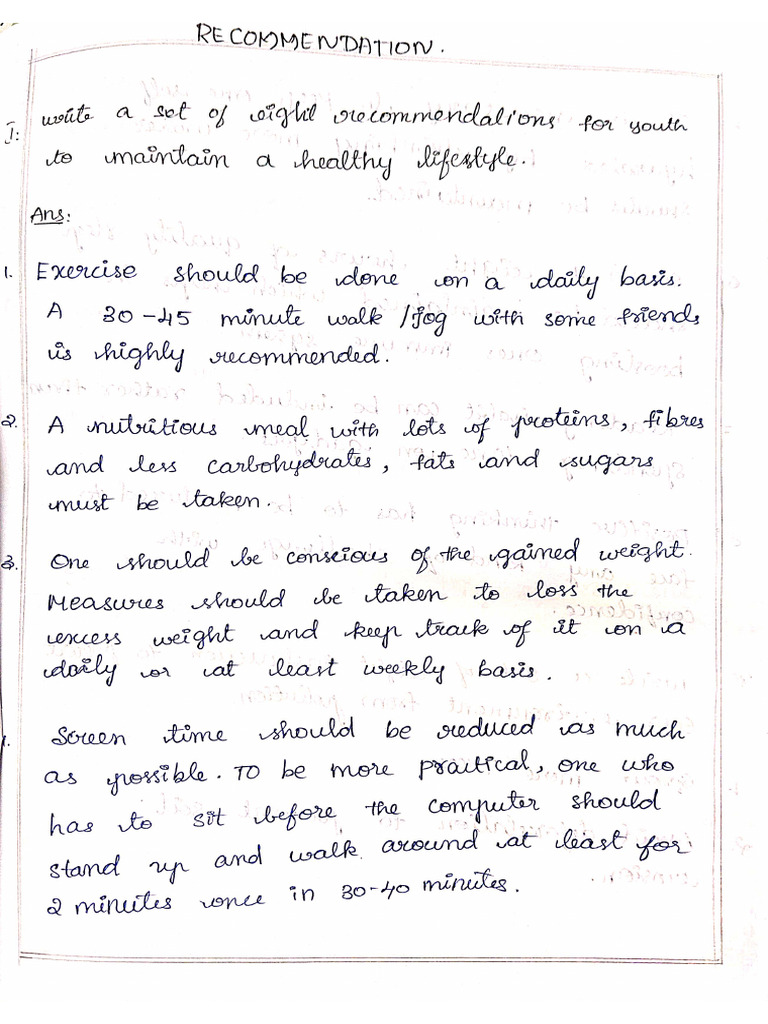 RECOMMENDATION.
I: write a set of eight recommendations for youth
to maintain a healthy lifestyle.
Ans:
1. Exercise should be done on a daily basis.
A 30-45 minute walk/jog with some friends
is highly recommended.
2. A nutritious meal with lots of proteins, fibres
and less carbohydrates, fats and sugars
must be taken.
3. One should be conscious of the gained weight.
Measures should be taken to loss the
excess weight and keep track of it on a
daily or at least weekly basis.
Screen time should be reduced as much
as possible. To be more practical, one who
has to sit before the computer should
stand up and walk around at least for
2 minutes once in 30-40 minutes.